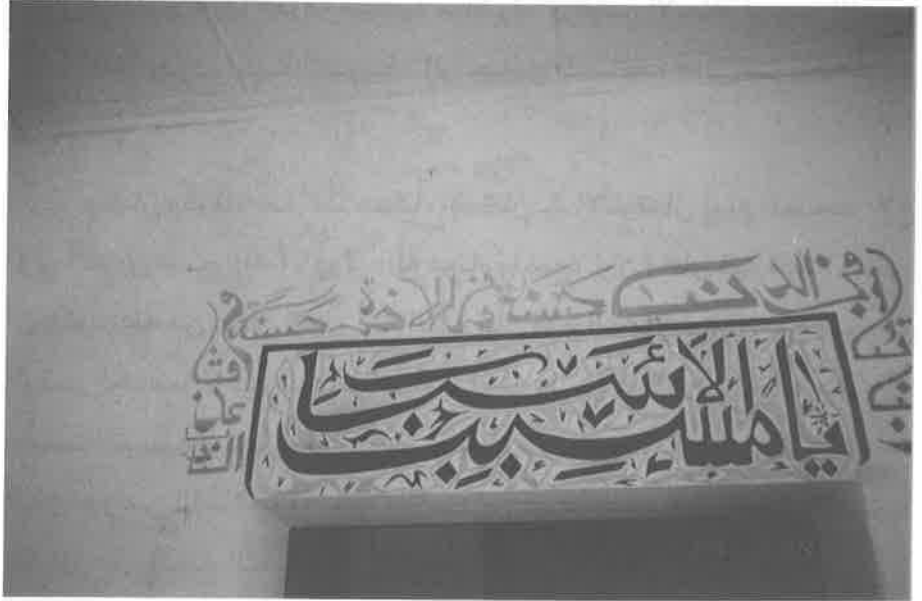 ربنا اتنا في الدنيا حسنة وفي الاخرة حسنة
وقنا
عذاب
النار
يا مسبب الأسباب